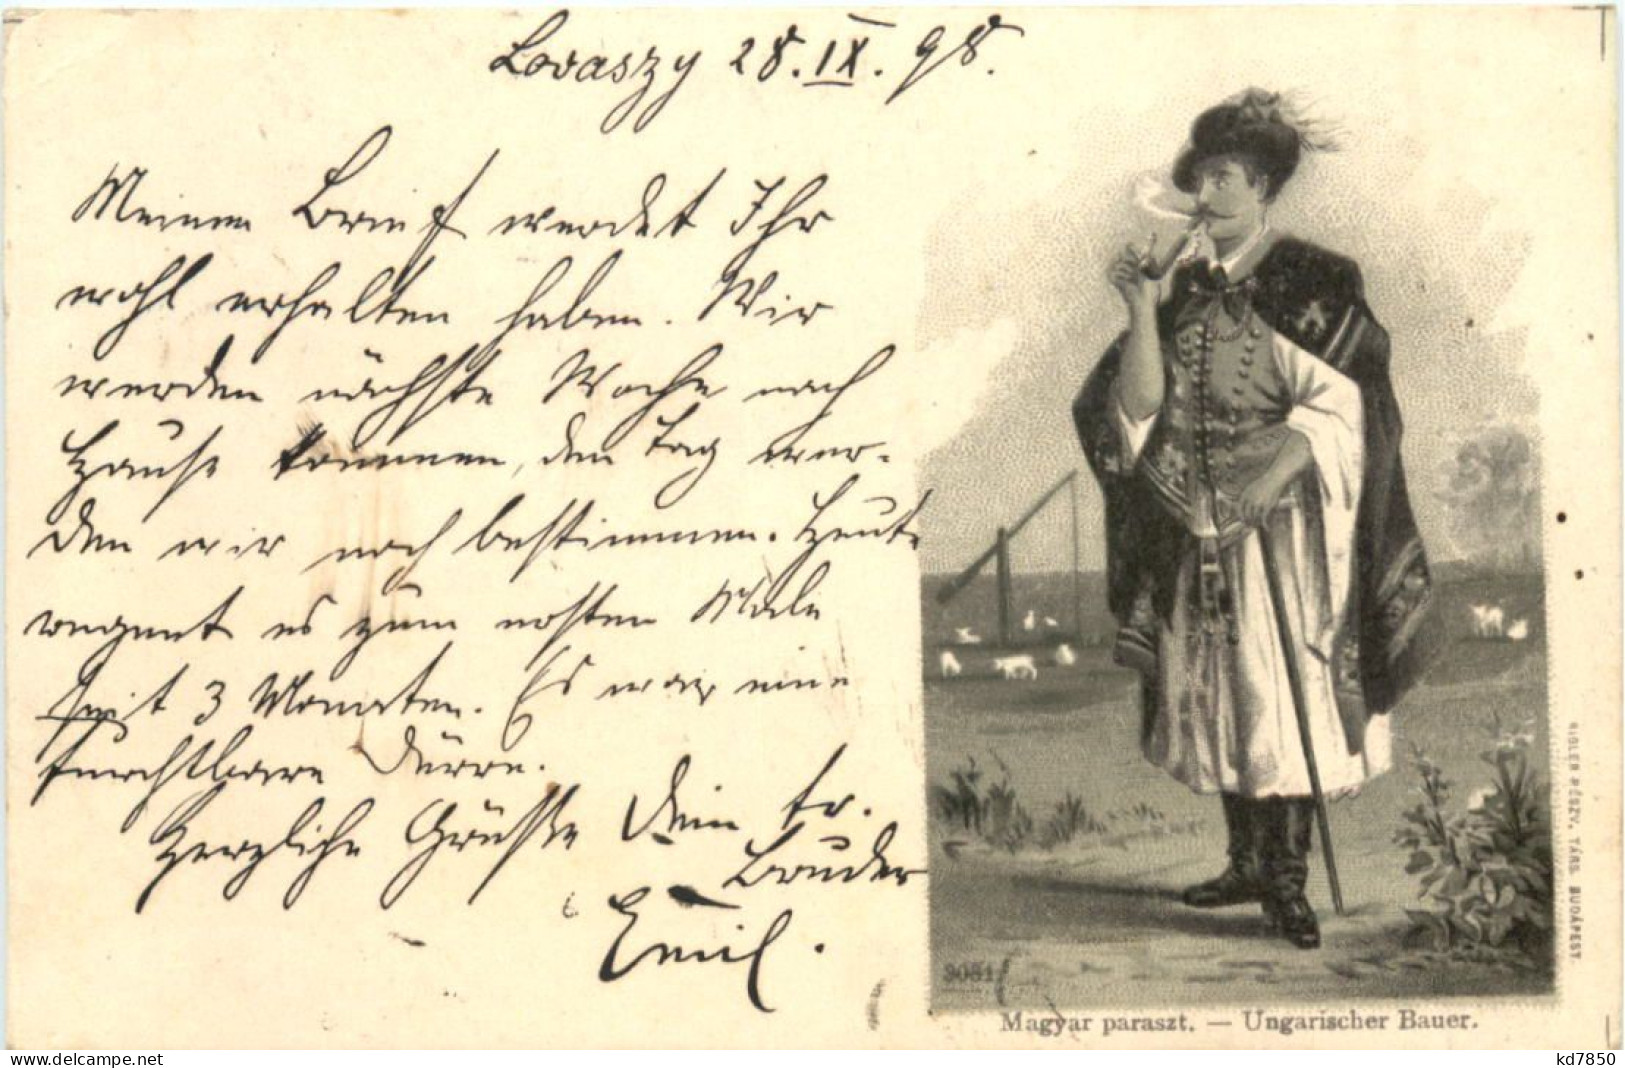 Lovaszy 28.IX.98.
Meinen Brief werdet Ihr
wohl erhalten haben. Wir
werden nächste Woche nach
Hause kommen, den Tag wer-
den wir noch bestimmen. Heute
regnet es zum ersten Male
seit 3 Monaten. Es war eine
furchtbare Dürre.
Herzliche Grüße Dein tr.
Bruder
Emil.
9051
Magyar paraszt. — Ungarischer Bauer.
RIGLER RÉSZV. TÁRS. BUDAPEST.
delcampe.net
kd7850